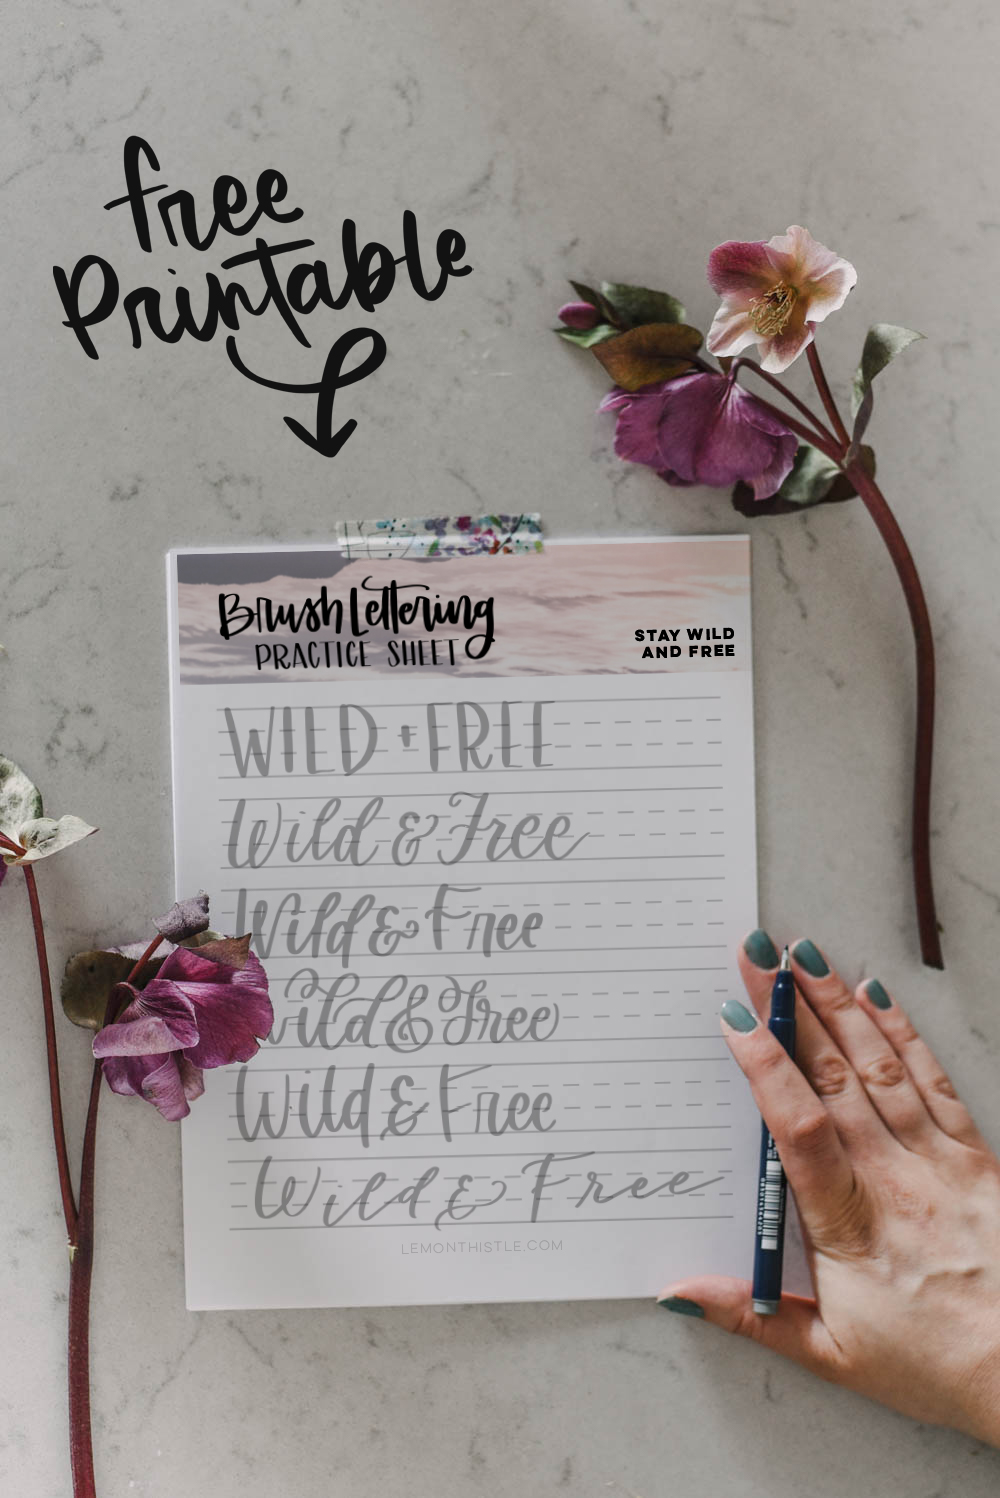 free
Printable
Brush Lettering
PRACTICE SHEET
STAY WILD
AND FREE
WILD + FREE
Wild & Free
Wild & Free
Wild & Free
Wild & Free
Wild & Free
LEMONTHISTLE.COM